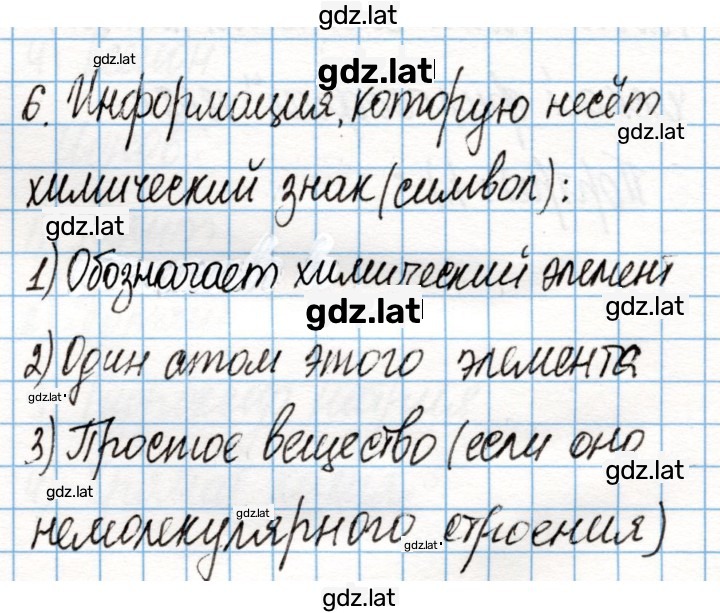 gdz.lat
gdz.lat
gdz.lat
6. Информация, которую несёт
gdz.lat
химический знак (символ):
gdz.lat
1) Обозначает химический элемент
gdz.lat
gdz.lat
2) Один атом этого элемента
gdz.lat
3) Простое вещество (если оно
gdz.lat
gdz.lat
gdz.lat
немолекулярного строения)
gdz.lat
gdz.lat